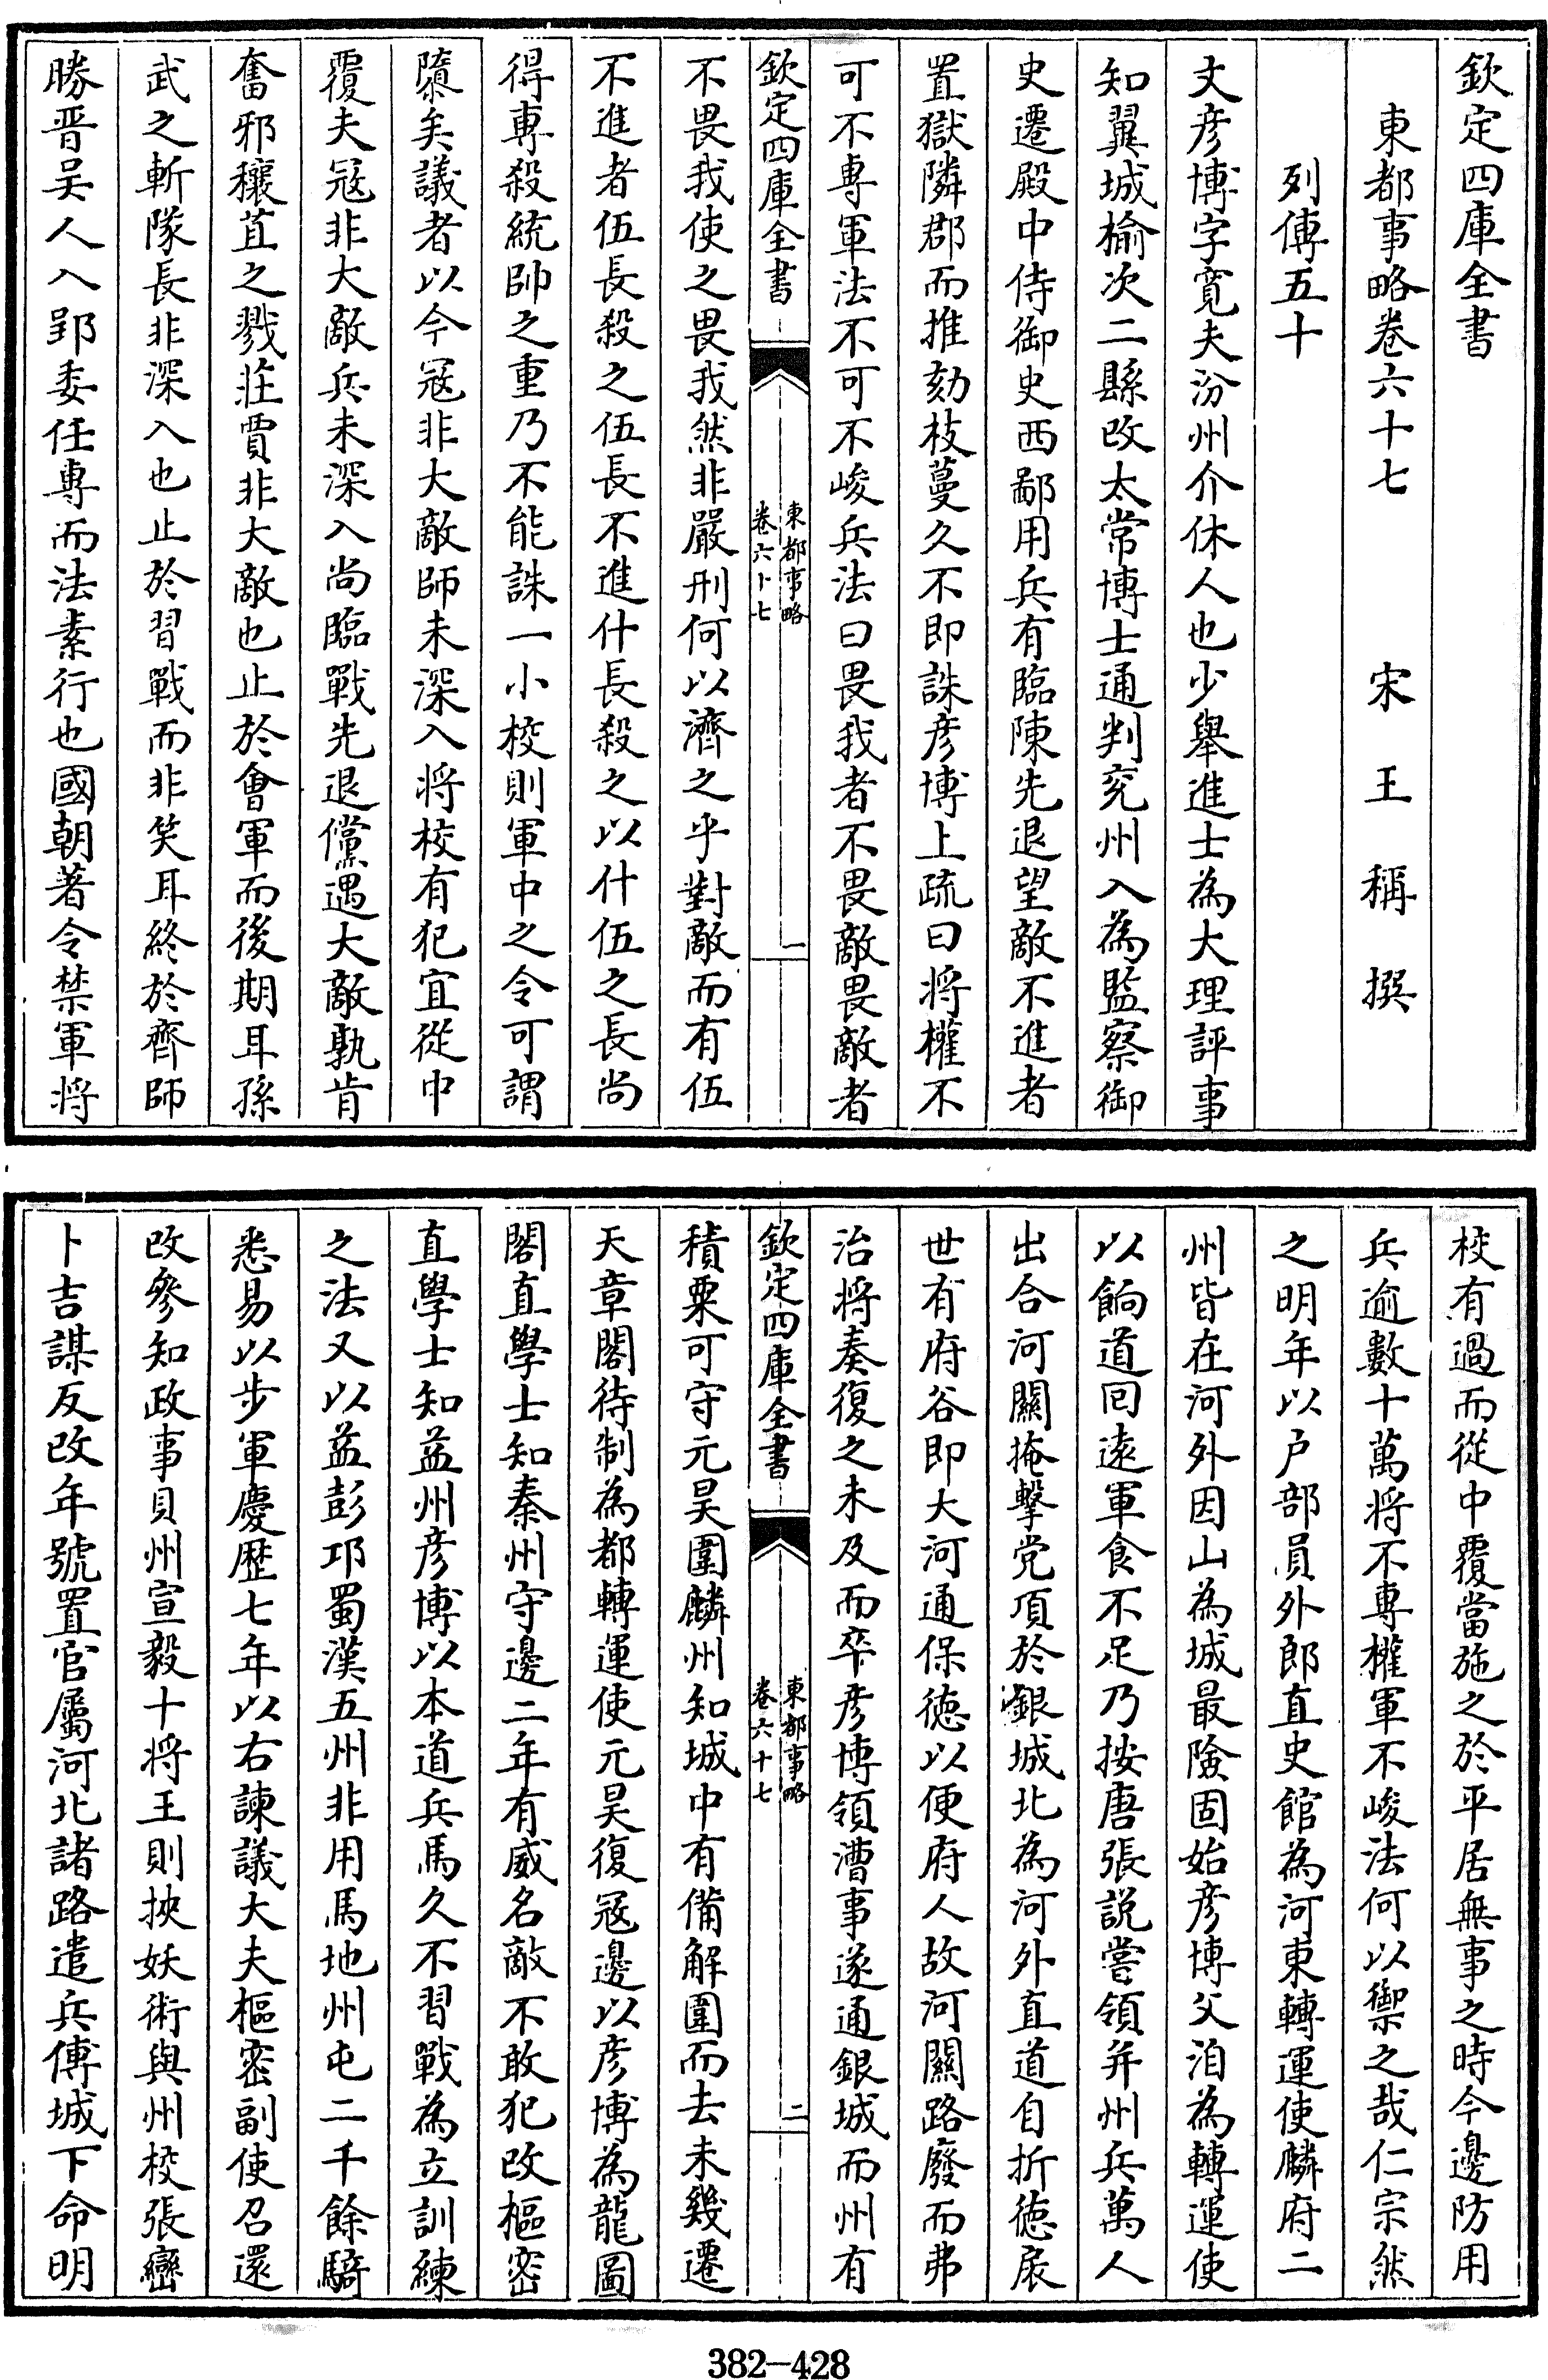 欽定四庫全書
東都事略卷六十七　宋　王　稱　撰
列傳五十
文彦博字寛夫汾州介休人也少舉進士為大理評事
知翼城榆次二縣改太常博士通判兖州入為監察御
史遷殿中侍御史西鄙用兵有臨陳先退望敵不進者
置獄隣郡而推劾枝蔓久不即誅彦博上疏曰将權不
可不専軍法不可不峻兵法曰畏我者不畏敵畏敵者
欽定四庫全書
東都事略
卷六十七
一
不畏我使之畏我然非嚴刑何以濟之乎對敵而有伍
不進者伍長殺之伍長不進什長殺之以什伍之長尚
得專殺統帥之重乃不能誅一小校則軍中之令可謂
隳矣議者以今冦非大敵師未深入将校有犯宜從中
覆夫冦非大敵兵未深入尚臨戰先退儻遇大敵孰肯
奮邪穰苴之戮莊賈非大敵也止於會軍而後期耳孫
武之斬隊長非深入也止於習戰而非笑耳終於齊師
勝晋吴人入郢委任專而法素行也國朝著令禁軍将
校有過而從中覆當施之於平居無事之時今邊防用
兵逾數十萬将不專權軍不峻法何以禦之哉仁宗然
之明年以户部員外郎直史館為河東轉運使麟府二
州皆在河外因山為城最險固始彦博父洎為轉運使
以餉道回逺軍食不足乃按唐張説嘗領并州兵萬人
出合河關掩擊党項於銀城北為河外直道自折徳扆
世有府谷即大河通保徳以便府人故河關路廢而弗
治将奏復之未及而卒彦博領漕事遂通銀城而州有
欽定四庫全書
東都事略
卷六十七
二
積粟可守元昊圍麟州知城中有備解圍而去未幾遷
天章閣待制為都轉運使元昊復冦邊以彦博為龍圖
閣直學士知秦州守邊二年有威名敵不敢犯改樞密
直學士知益州彦博以本道兵馬久不習戰為立訓練
之法又以益彭邛蜀漢五州非用馬地州屯二千餘騎
悉易以步軍慶歴七年以右諫議大夫樞密副使召還
改參知政事貝州宣毅十将王則挾妖術與州校張巒
卜吉謀反改年號置官屬河北諸路遣兵傅城下命明
382—428